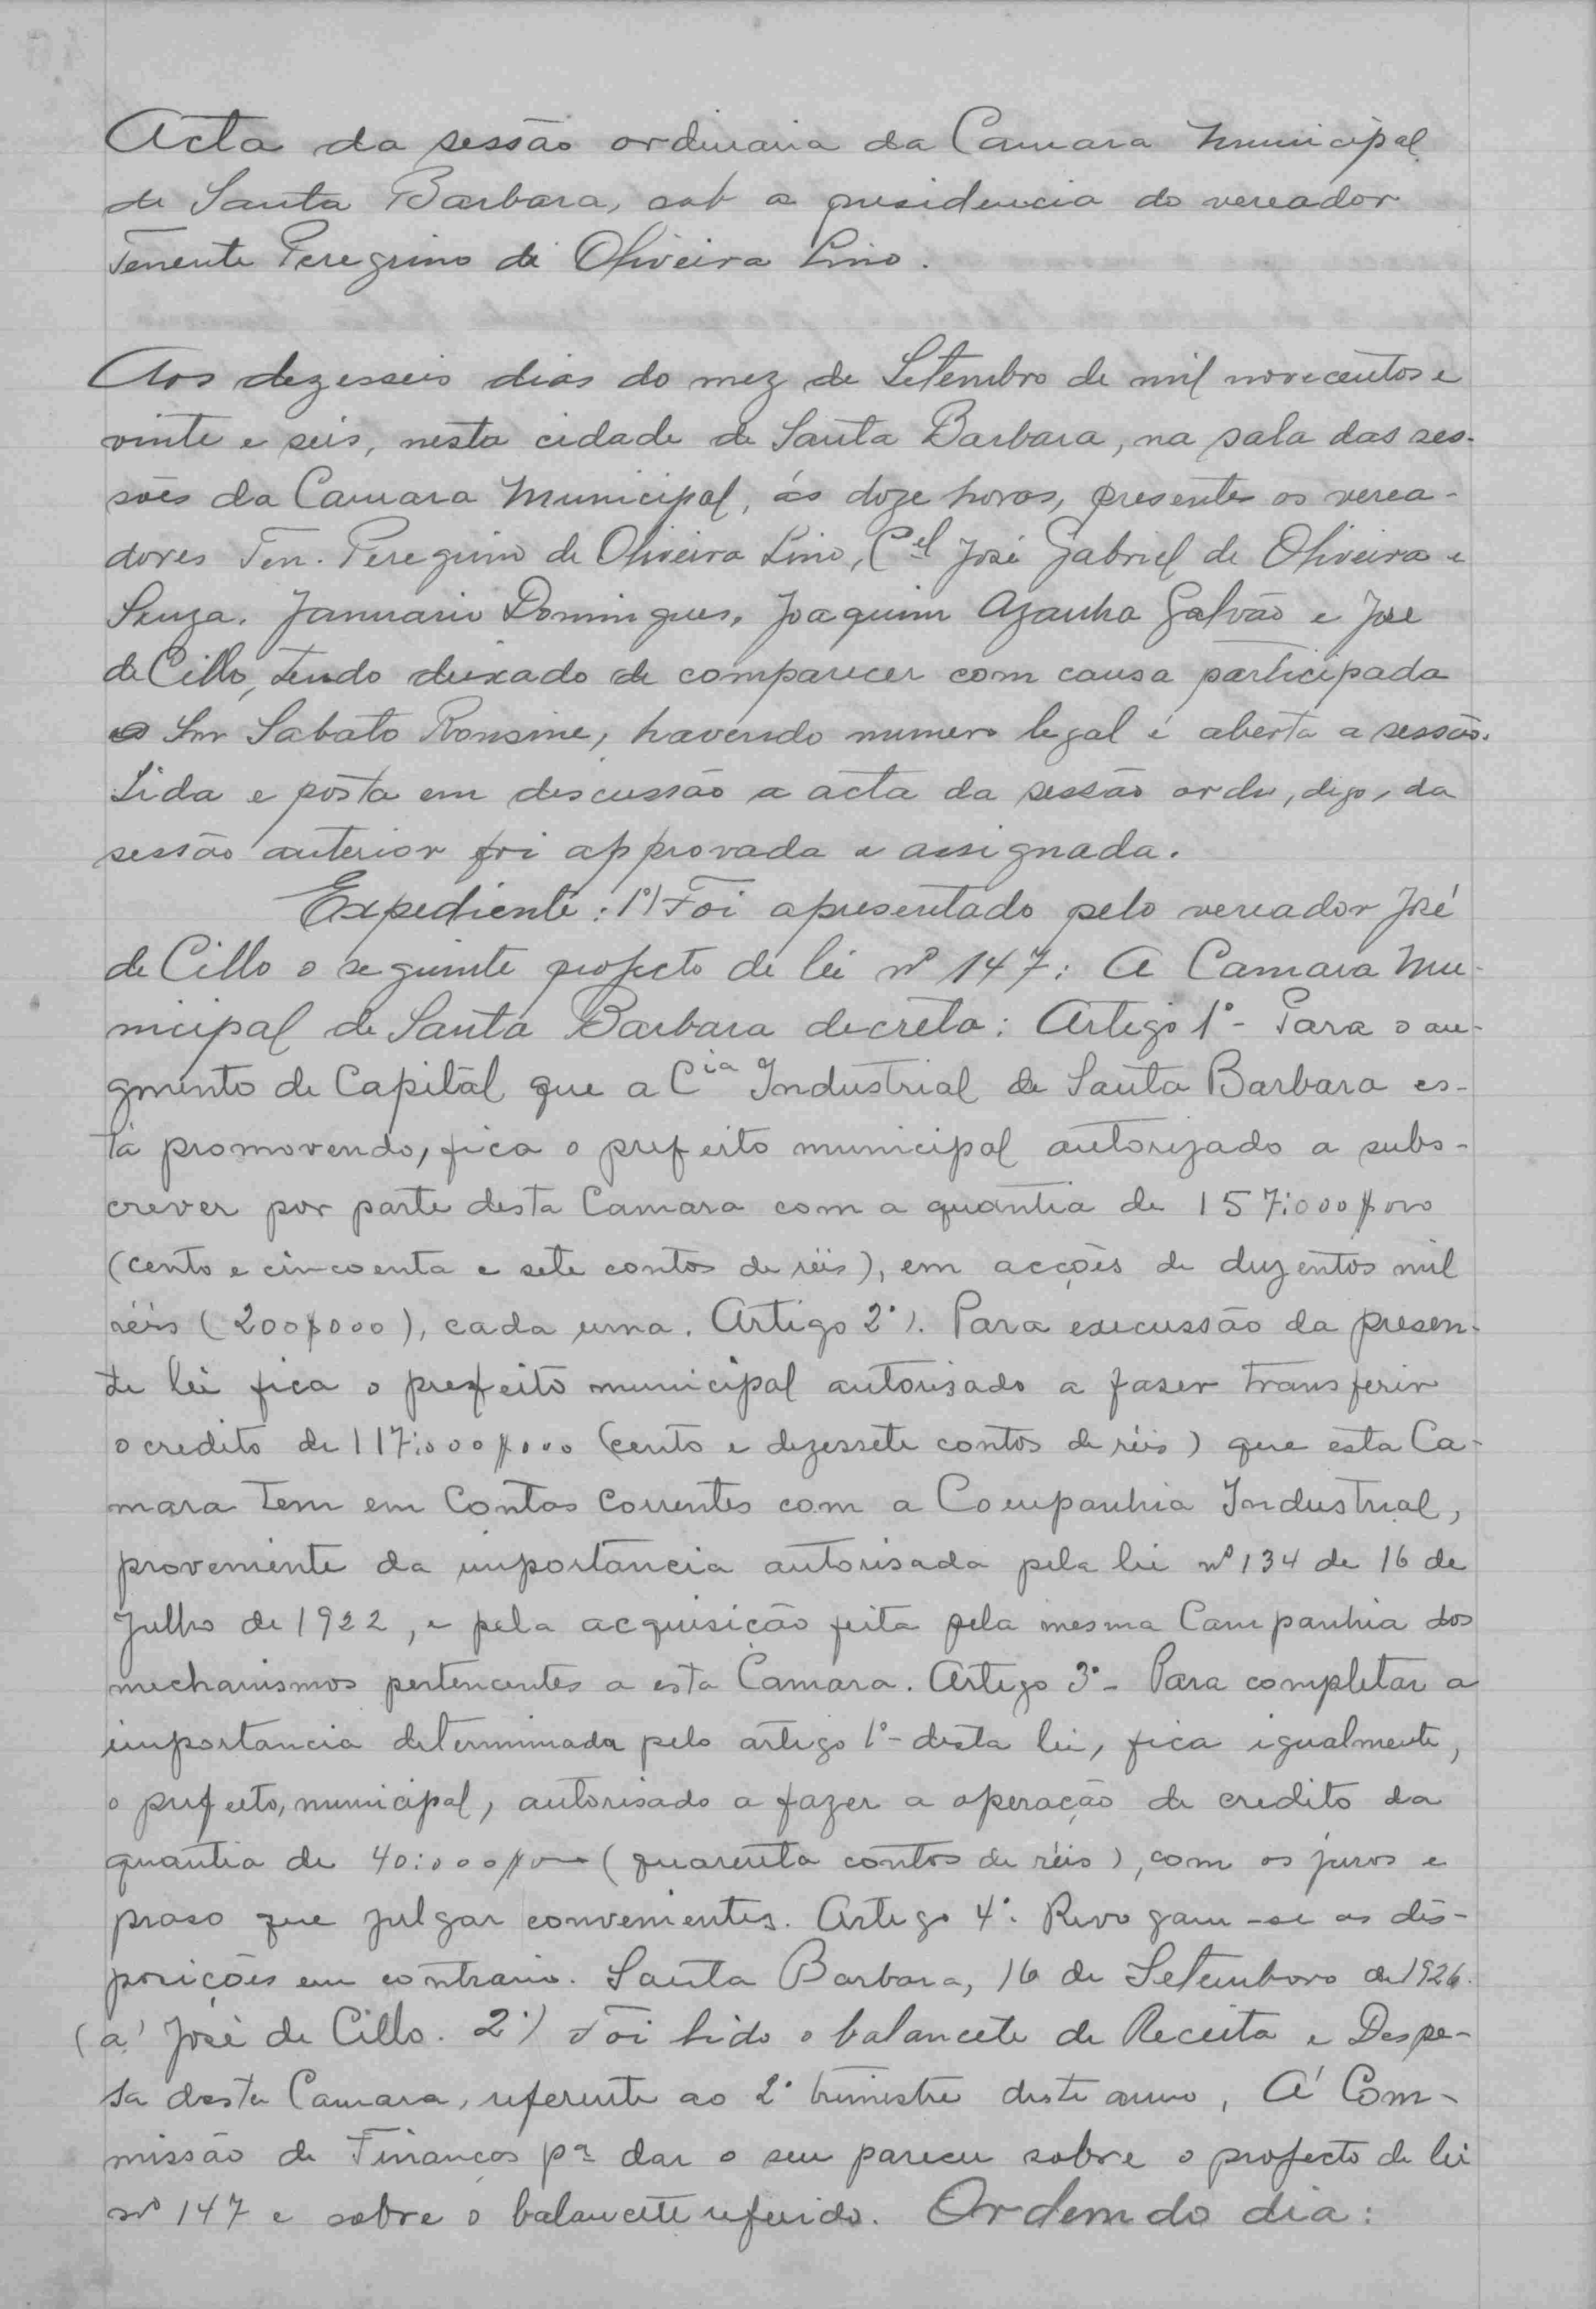 Acta da sessão ordinaria da Camara Municipal
de Santa Barbara, sob a presidencia do vereador
Tenente Peregrino de Oliveira Lino.
Aos dezesseis dias do mez de Setembro de mil novecentos e
vinte e seis, nesta cidade de Santa Barbara, na sala das ses-
sões da Camara Municipal, ás doze horas, presentes os verea-
dores Ten. Peregrino de Oliveira Lino, Cel José Gabriel de Oliveira e
Souza, Januario Domingues, Joaquim Azanha Galvão e José
de Cillo, tendo deixado de comparecer com causa participada
o Snr Sabato Ronsine, havendo numero legal é aberta a sessão.
Lida e posta em discussão a acta da sessão ordi, digo, da
sessão anterior foi approvada e assignada.
Expediente: 1º) Foi apresentado pelo vereador José
de Cillo o seguinte projecto de lei nº 147: A Camara Mu-
nicipal de Santa Barbara decreta: Artigo 1º - Para o au-
gmento de Capital que a Cia Industrial de Santa Barbara es-
tá promovendo, fica o prefeito municipal autorizado a subs-
crever por parte desta Camara com a quantia de 157:000$000
(cento e cincoenta e sete contos de réis), em acções de duzentos mil
réis (200$000), cada uma. Artigo 2º). Para execussão da presen-
te lei fica o prefeito municipal autorisado a faser transferir
o credito de 117:000$000 (cento e dezessete contos de réis) que esta Ca-
mara tem em Contas Correntes com a Companhia Industrial,
proveniente da importancia autorisada pela lei nº 134 de 16 de
Julho de 1922, e pela acquisição feita pela mesma Companhia dos
mechanismos pertencentes a esta Camara. Artigo 3º - Para completar a
importancia determinada pelo artigo 1º - desta lei, fica igualmente,
o prefeito, municipal, autorisado a fazer a operação de credito da
quantia de 40:000$000 (quarenta contos de réis), com os juros e
praso que julgar convenientes. Artigo 4º. Revogam-se as dis-
posições em contrario. Santa Barbara, 16 de Setembro de 1926.
(a) José de Cillo. 2º) Foi lido o balancete de Receita e Despe-
sa desta Camara, referente ao 2º trimestre deste anno, Á Com-
missão de Finanças pª dar o seu parecer sobre o projecto de lei
nº 147 e sobre o balancete referido. Ordem do dia: